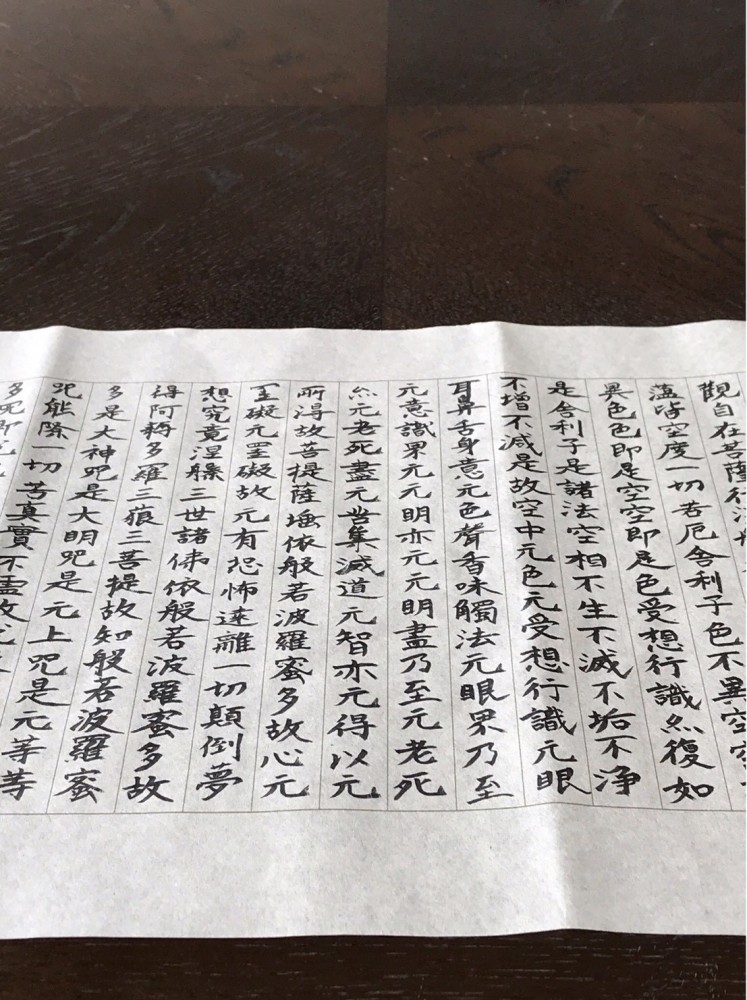 觀自在菩薩行深
蘊皆空度一切苦厄舍利子色不異空空
異色色即是空空即是色受想行識亦復如
是舍利子是諸法空相不生不滅不垢不淨
不增不減是故空中元色元受想行識元眼
耳鼻舌身意元色聲香味觸法元眼界乃至
元意識界元元明亦元元明盡乃至元老死
亦元老死盡元苦集滅道元智亦元得以元
所得故菩提薩埵依般若波羅蜜多故心元
罣礙元罣礙故元有恐怖遠離一切顛倒夢
想究竟涅槃三世諸佛依般若波羅蜜多故
得阿耨多羅三藐三菩提故知般若波羅蜜
多是大神咒是大明咒是元上咒是元等等
咒能除一切苦真實不虛故
多咒即